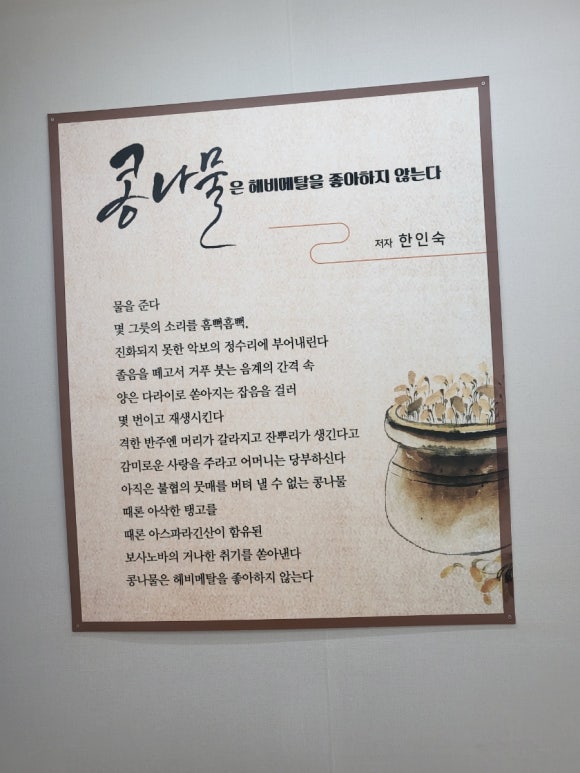 콩나물은 헤비메탈을 좋아하지 않는다
저자 한인숙
물을 준다
몇 그릇의 소리를 흠뻑흠뻑.
진화되지 못한 악보의 정수리에 부어내린다
졸음을 떼고서 거푸 붓는 음계의 간격 속
양은 다라이로 쏟아지는 잡음을 걸러
몇 번이고 재생시킨다
격한 반주엔 머리가 갈라지고 잔뿌리가 생긴다고
감미로운 사랑을 주라고 어머니는 당부하신다
아직은 불협의 뭇매를 버텨 낼 수 없는 콩나물
때론 아삭한 탱고를
때론 아스파라긴산이 함유된
보사노바의 거나한 취기를 쏟아낸다
콩나물은 헤비메탈을 좋아하지 않는다